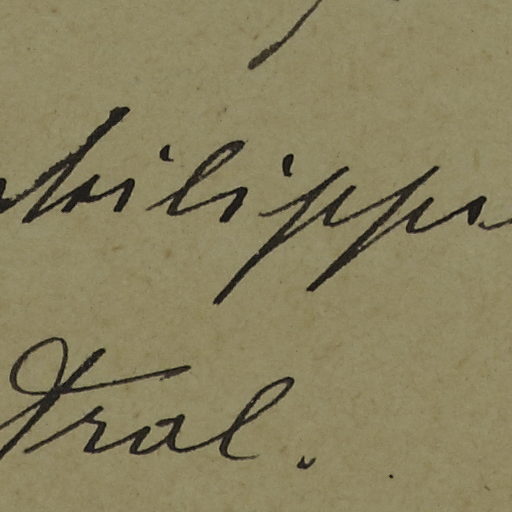 hilippe
tral.